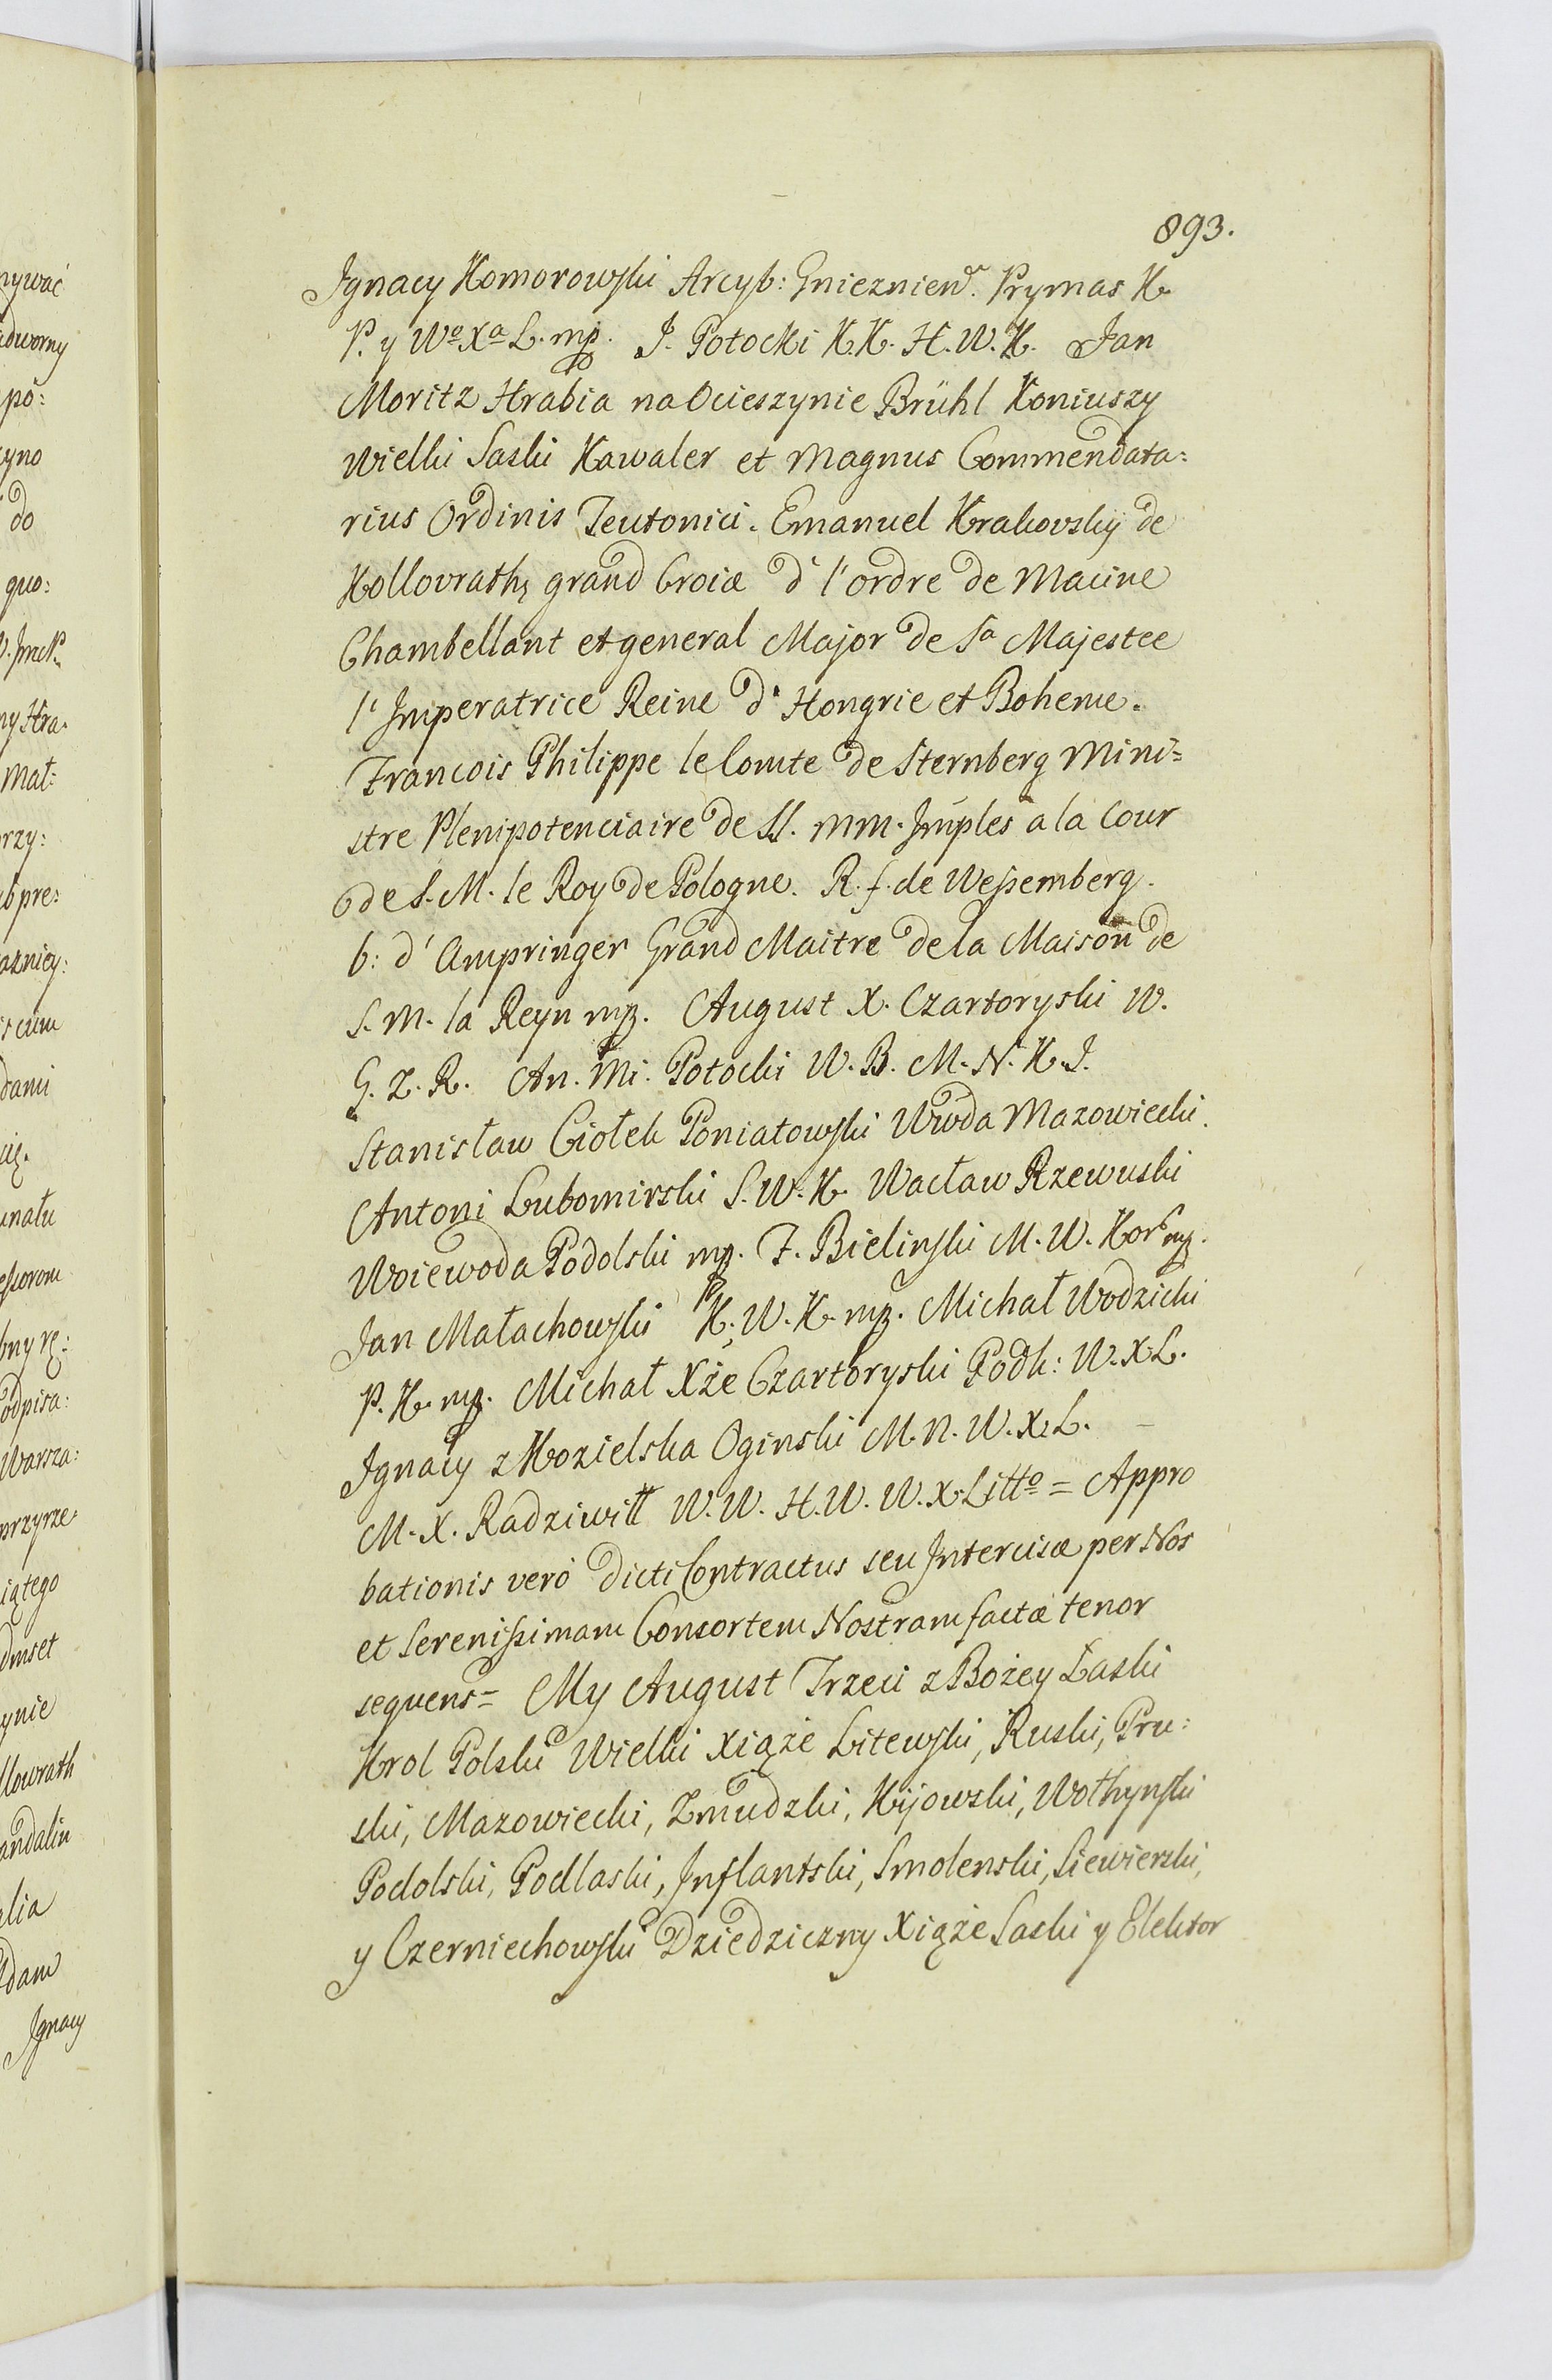 893.
Ignacy Komorowski Arcyb: Gnieznien. Prymas K.
P. y Wo Xa L. mp. J. Potocki K.K. H.W.K. Jan
Moritz Hrabia na Ocieszynie Brühl Koniuszy
wielki Saski Kawaler et Magnus Commendata:
rius Ordinis Teutonici. Emanuel Krakovskÿ de
Kollovrath, grand Croiæ d' l'ordre de Macine
Chambellant et general Major de Sa Majestee
l'Imperatrice Reine d'Hongrie et Boheme.
Francois Philippe le Comte de Sternberg Mini=
stre Plenipotenciaire de SS. MM. Imples a la Cour
de S. M. le Roy de Pologne. R. f. de Wessemberg.
b: d'Ampringer Grand Maitre de la Maison de
S. M. la Reyn mp. August X. Czartoryski W.
G. Z. R. An. Mi. Potocki W. B. M. N. K. J.
Stanisław Ciołek Poniatowski Wwoda Mazowiecki.
Antoni Lubomirski S. W. K. Wacław Rzewuski
Woiewoda Podolski mp. F. Bielinski M. W. Kor mp.
Jan Małachowski K. W. K. mp. Michał Wodzicki
P. K. mp. Michał Xże Czartoryski Podk: W. X. L.
Ignacy z Kozielska Oginski M. N. W. X. L. –
M. X. Radziwiłł W. W. H. W. W. X. Litto = Appro
bationis verò dicti Contractus seu Intercisæ per Nos
et Serenissimam Consortem Nostram factæ tenor
sequens = My August Trzeci z Bożey Łaski
Krol Polski Wielki Xiąże Litewski, Ruski, Pru:
ski, Mazowiecki, Zmudzki, Kijowski, Wołhynski
Podolski, Podlaski, Inflantski, Smolenski, Siewierski,
y Czerniechowski Dziedziczny Xiąże Saski y Elektor
nywać
adworny
pó:
yno
do
quo:
ny Hra.
Mat:
rzy:
b pre:
azniey:
is cum
dani
unału
essorom
bny rę:
odpisa:
Warsza:
przyrze.
iątego
dmset
ynie
llowrath
andalin
elia
dam
Ignacy